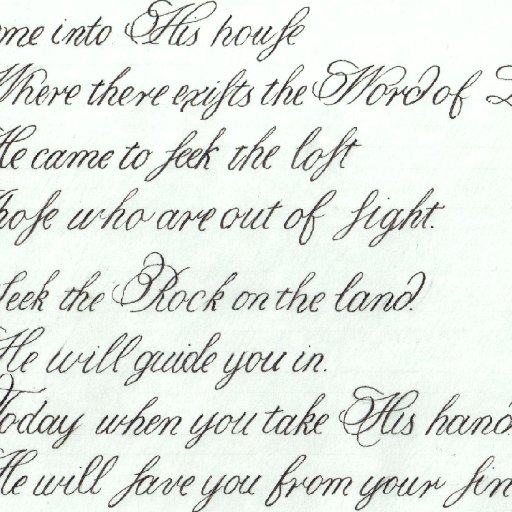 me into His houſe
Where there exiſts the Word of
He came to ſeek the loſt
hoſe who are out of ſight.
Seek the Rock on the land.
He will guide you in.
Today when you take His hand
He will ſave you from your ſin